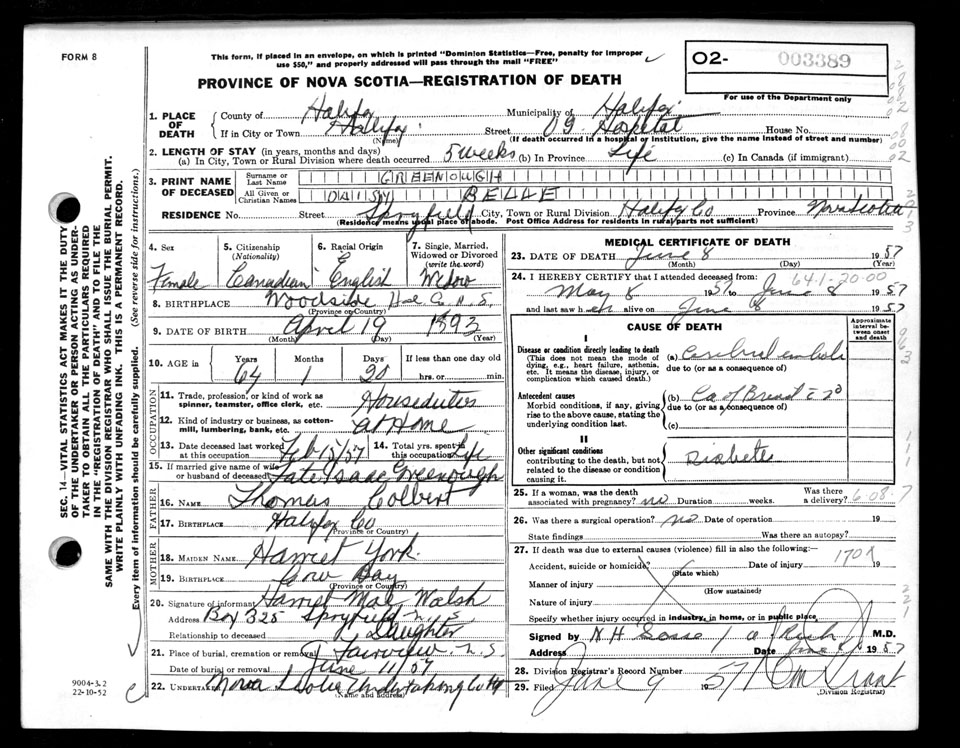 FORM 8
This form, if placed in an envelope, on which is printed "Dominion Statistics—Free, penalty for improper
use $50," and properly addressed will pass through the mail "FREE"
O2- 003389
For use of the Department only
PROVINCE OF NOVA SCOTIA—REGISTRATION OF DEATH
1. PLACE OF DEATH
County of Halifax Municipality of Halifax
If in City or Town Halifax Street V G Hospital House No.
(Name) (If death occurred in a hospital or institution, give the name instead of street and number)
2. LENGTH OF STAY (in years, months and days)
(a) In City, Town or Rural Division where death occurred 5 weeks (b) In Province Life (c) In Canada (if immigrant)
3. PRINT NAME OF DECEASED
Surname or Last Name GREENOUGH
All Given or Christian Names DAISY BELLE
RESIDENCE No. Street Spryfield City, Town or Rural Division Halifax Co Province Nova Scotia
(Residence means usual place of abode. Post Office Address for residents in rural parts not sufficient)
4. Sex Female
5. Citizenship (Nationality) Canadian
6. Racial Origin English
7. Single, Married, Widowed or Divorced (write the word) Widow
8. BIRTHPLACE Woodside Hfx Co. N.S.
(Province or Country)
9. DATE OF BIRTH April 19 1893
(Month) (Day) (Year)
10. AGE in Years Months Days If less than one day old
64 1 20 hrs. or min.
OCCUPATION
11. Trade, profession, or kind of work as
spinner, teamster, office clerk, etc. Houseduties
12. Kind of industry or business, as cotton-
mill, lumbering, bank, etc. at Home
13. Date deceased last worked at this occupation Feb 15/57
14. Total yrs. spent in this occupation Life
15. If married give name of wife
or husband of deceased Late Isaac Greenough
FATHER
16. NAME Thomas Colbert
17. BIRTHPLACE Halifax Co
(Province or Country)
MOTHER
18. MAIDEN NAME Harriet York
19. BIRTHPLACE Cow Bay
(Province or Country)
20. Signature of informant Harriet Mae Walsh
Address Box 325 Spryfield N.S
Relationship to deceased Daughter
21. Place of burial, cremation or removal Fairview N.S
Date of burial or removal June 11/57
22. UNDERTAKER Nova Scotia Undertaking Co
(Name and address)
9004-3.2
22-10-52
MEDICAL CERTIFICATE OF DEATH
23. DATE OF DEATH June 8 1957
(Month) (Day) (Year)
24. I HEREBY CERTIFY that I attended deceased from: 641-20-00
May 8 1957 to June 8 1957
and last saw her alive on June 8 1957
CAUSE OF DEATH
Approximate interval between onset and death
I
Disease or condition directly leading to death
(This does not mean the mode of
dying, e.g., heart failure, asthenia,
etc. It means the disease, injury, or
complication which caused death.)
(a) Cerebral emboli
due to (or as a consequence of)
Antecedent causes
Morbid conditions, if any, giving
rise to the above cause, stating the
underlying condition last.
(b) Ca of Breast c 2°
due to (or as a consequence of)
(c)
II
Other significant conditions
contributing to the death, but not
related to the disease or condition
causing it.
Diabetes
25. If a woman, was the death Was there
associated with pregnancy? no Duration weeks. a delivery?
26. Was there a surgical operation? no Date of operation 19
State findings Was there an autopsy?
27. If death was due to external causes (violence) fill in also the following:— 170X
Accident, suicide or homicide? Date of injury 19
(State which)
Manner of injury
(How sustained)
Nature of injury
Specify whether injury occurred in industry, in home, or in public place
Signed by M.D.
Address Date June 1957
28. Division Registrar's Record Number
29. Filed June 9 1957
(Division Registrar)
SEC. 14—VITAL STATISTICS ACT MAKES IT THE DUTY
OF THE UNDERTAKER OR PERSON ACTING AS UNDER-
TAKER TO OBTAIN ALL THE PARTICULARS REQUIRED
IN THE "REGISTRATION OF DEATH" AND TO FILE THE
SAME WITH THE DIVISION REGISTRAR WHO SHALL ISSUE THE BURIAL PERMIT.
WRITE PLAINLY WITH UNFADING INK. THIS IS A PERMANENT RECORD.
Every item of information should be carefully supplied. (See reverse side for instructions.)